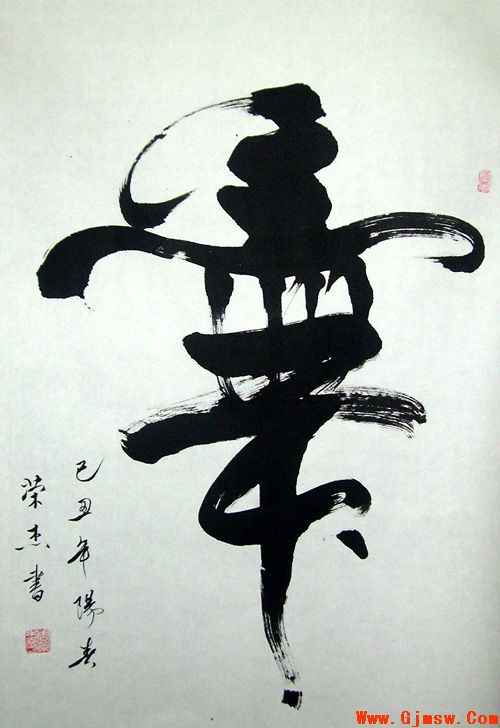 舞
己丑年陽春
榮杰書
Www.Gjmsw.Com